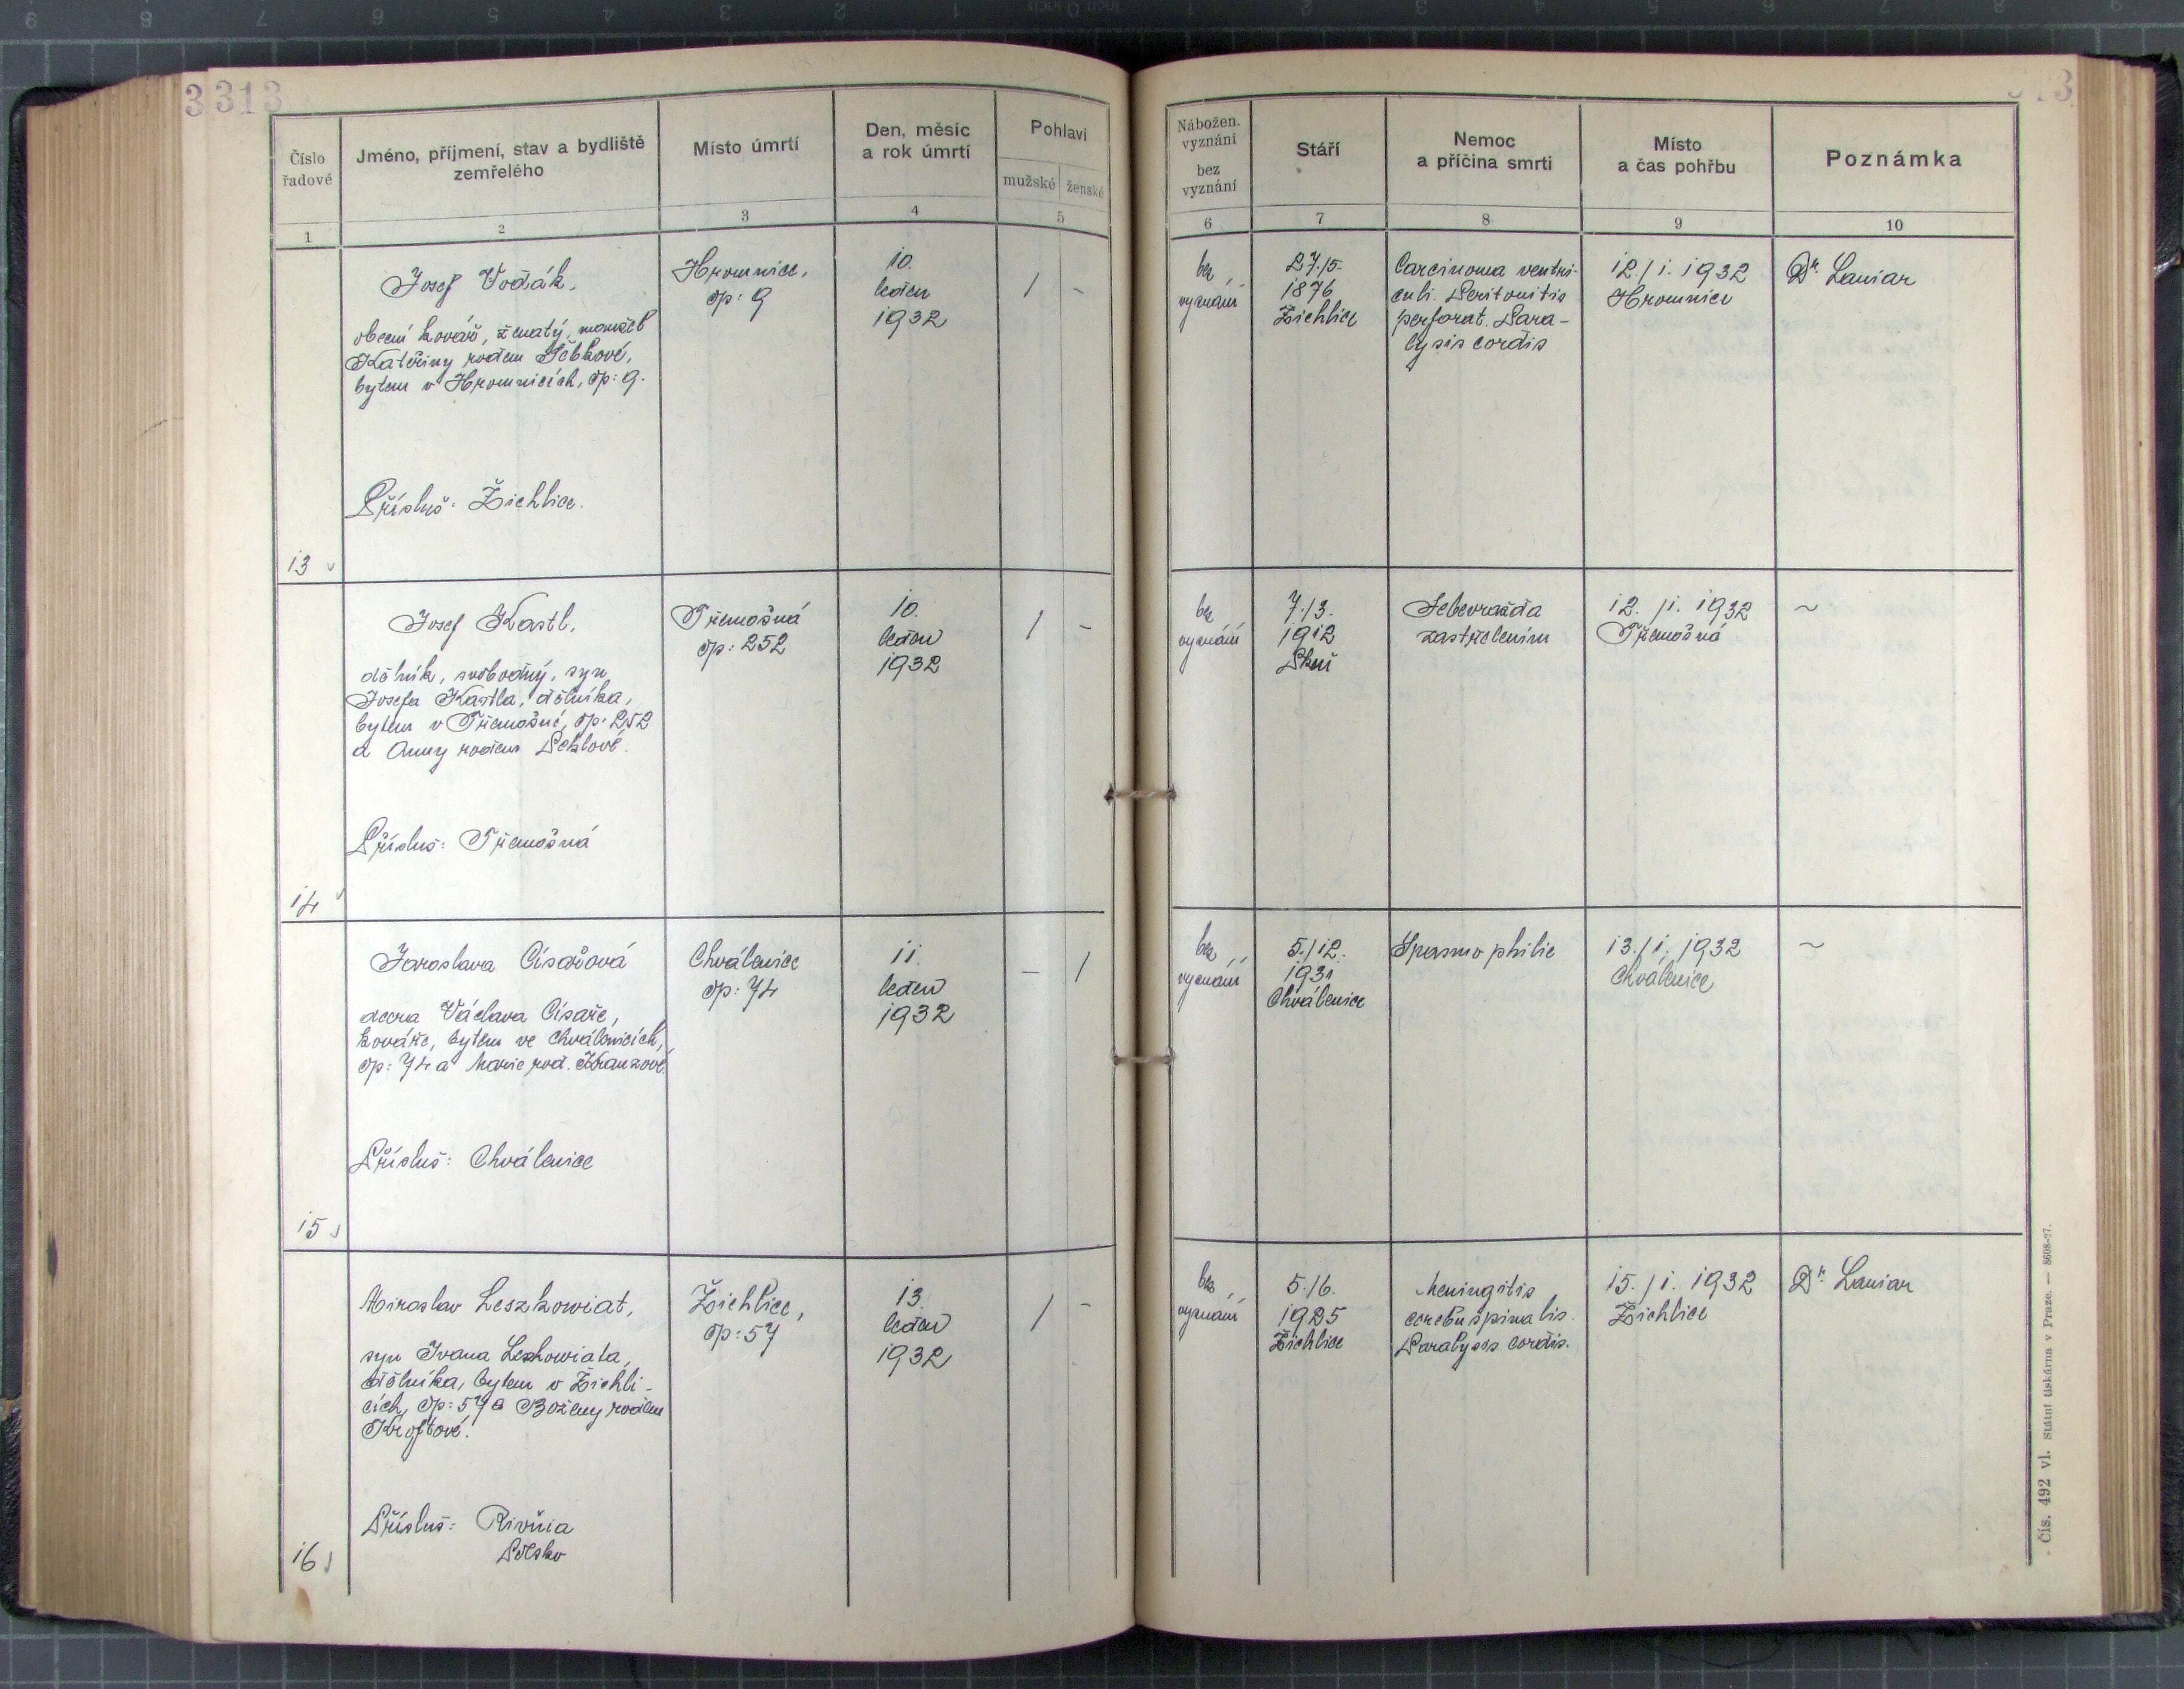 3 313
Číslo
řadové
Jméno, příjmení, stav a bydliště
zemřelého
Místo úmrtí
Den, měsíc
a rok úmrtí
Pohlaví
mužské
ženské
1
2
3
4
5
Nábožen.
vyznání
bez
vyznání
Stáří
Nemoc
a příčina smrti
Místo
a čas pohřbu
Poznámka
6
7
8
9
10
13
Josef Vodák,
obecní kovář, ženatý, manžel
Kateřiny rodem
bytem v Hromnicích, čp: 9.
Přísluš: Žichlice.
Hromnice,
čp: 9
10.
leden
1932
1
-
bez
vyznání
27./5.
1876
Žichlice
Carcinoma ventri-
culi. Peritonitis
perforat. Para-
lysis cordis
12./1. 1932
Hromnice
Dr. Laniar
14
Josef Kastl,
dělník, svobodný, syn
Josefa Kastla, dělníka,
bytem v Třemošné, čp: 252
a Anny rodem
Přísluš: Třemošná
Třemošná
čp: 252
10.
leden
1932
1
-
bez
vyznání
7./3.
1912
Sebevražda
zastřelením
12. /1. 1932
Třemošná
~
15
Jaroslava Císařová
dcera Václava Císaře,
kováře, bytem ve Chválenicích,
čp: 74 a Marie rod.
Přísluš: Chválenice
Chválenice
čp: 74
11.
leden
1932
-
1
bez
vyznání
5./12.
1931
Chválenice
Spasmophilie
13./1. 1932
Chválenice
~
16
Miroslav Leszkowiat,
syn Ivana Leszkowiata,
dělníka, bytem v Žichli-
cích, čp: 57 a Boženy rodem
Kroftové.
Přísluš: Rivňia
Polsko
Žichlice,
čp: 57
13.
leden
1932
1
-
bez
vyznání
5./6.
1925
Žichlice
Meningitis
cerebrispinalis.
Paralysis cordis.
15./1. 1932
Žichlice
Dr. Laniar
Čís. 492 vl. Státní tiskárna v Praze. — 8608-27.